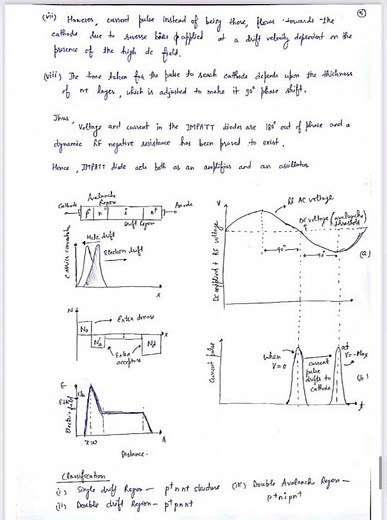 (vii) However, current pulse instead of being there, flows towards the
cathode due to reverse bias applied at a drift velocity dependent on the
presence of the high dc field.
(viii) The time taken for the pulse to reach cathode depends upon the thickness
of n+ layer, which is adjusted to make it 90° phase shift.
Thus,
Voltage and current in the IMPATT diodes are 180° out of phase and a
dynamic RF negative resistance has been proved to exist.
Hence, IMPATT diode acts both as an amplifier and an oscillator.
Avalanche
Region
Cathode
p+ n i n+
Anode
Drift Region
Hole drift
Electron drift
x
N
Extra donors
ND
NA
Extra
acceptors
x
E
Electric field
Distance
V
RF AC voltage
DC voltage (avalanche
threshold)
DC applied + RF voltage
90°
90°
(a)
Current pulse
when
V=0
current
pulse
drifts to
cathode
at
V=-Max
(b)
t
Classification
(i) Single drift Region - p+ n i n+ structure (iii) Double Avalanche Region -
p+nipn+
(ii) Double drift Region - p+ p n n+